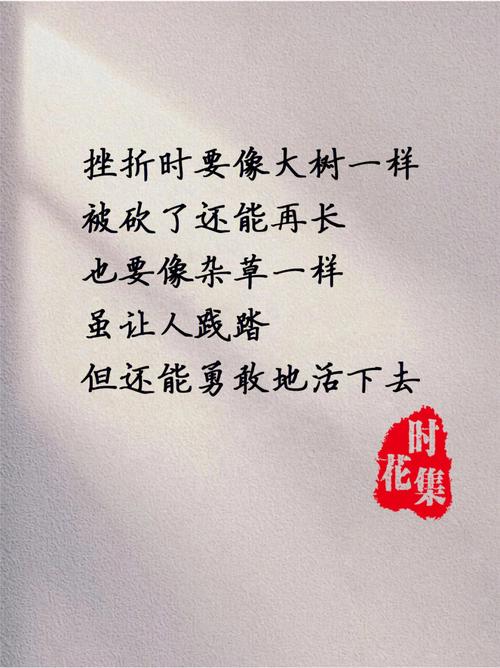 挫折时要像大树一样
被砍了还能再长
也要像杂草一样
虽让人践踏
但还能勇敢地活下去
时
花集